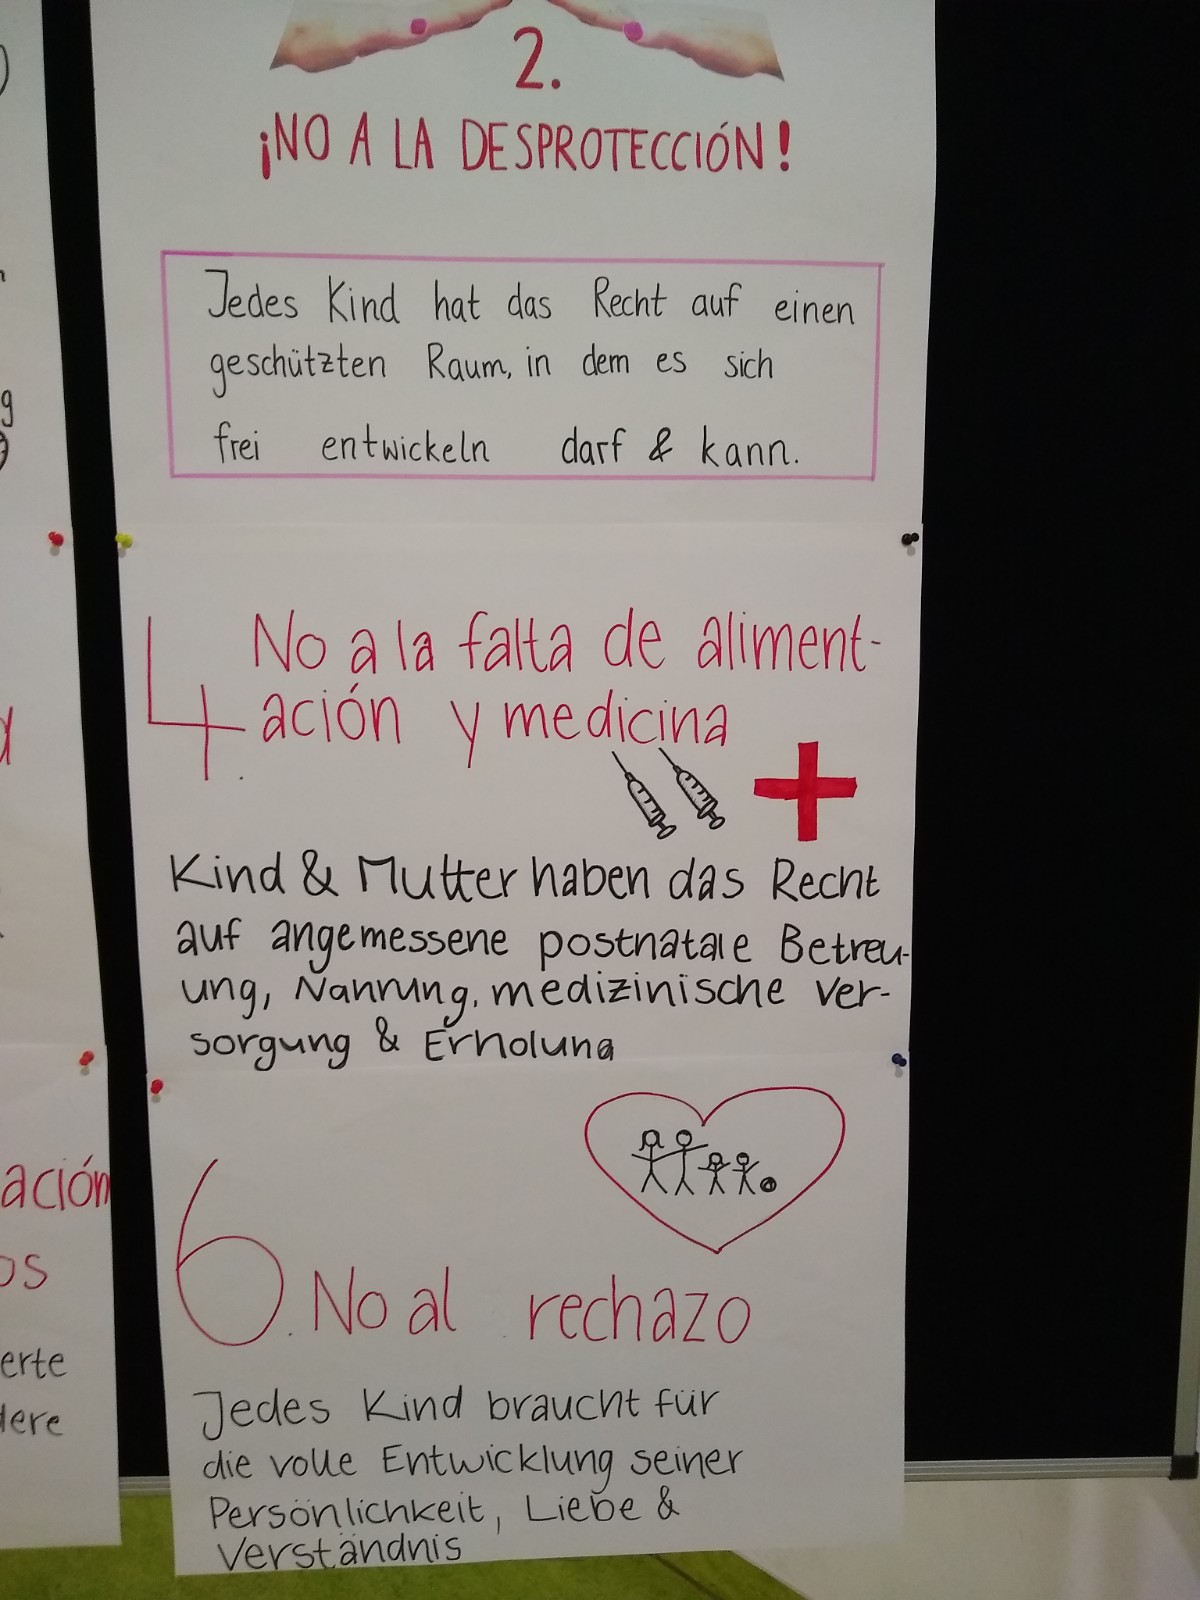 2.
¡NO A LA DESPROTECCIÓN!
Jedes Kind hat das Recht auf einen
geschützten Raum, in dem es sich
frei entwickeln darf & kann.
4. No a la falta de aliment-
ación y medicina
Kind & Mutter haben das Recht
auf angemessene postnatale Betreu-
ung, Nahrung, medizinische Ver-
sorgung & Erholung
6. No al rechazo
Jedes Kind braucht für
die volle Entwicklung seiner
Persönlichkeit, Liebe &
Verständnis
ación
os
erte
dere